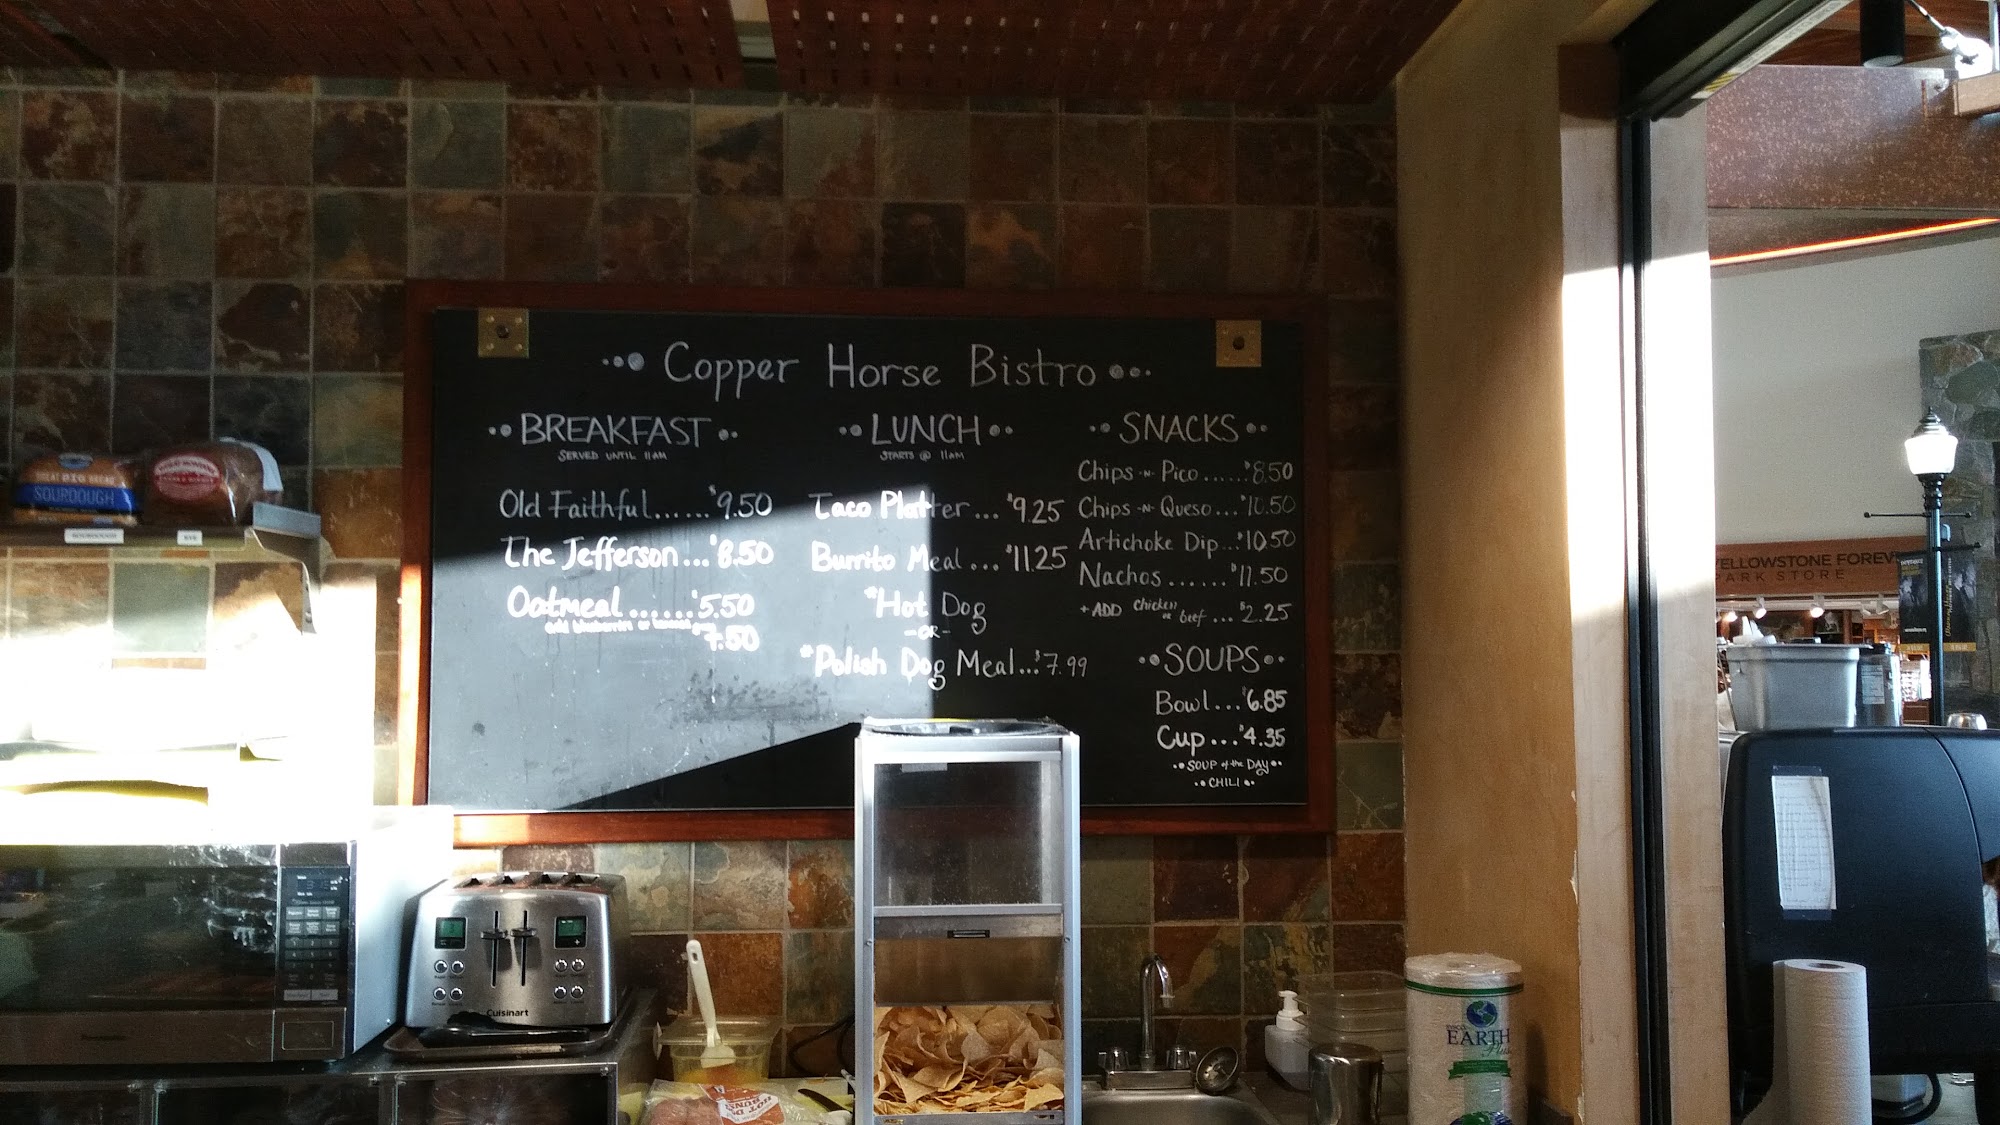 Copper Horse Bistro
BREAKFAST
SERVED UNTIL 11AM
Old Faithful......$9.50
The Jefferson...$8.50
Oatmeal......$5.50
add blueberries or
$7.50
LUNCH
STARTS @ 11AM
Taco Platter...$9.25
Burrito Meal...$11.25
*Hot Dog
-OR-
*Polish Dog Meal...$7.99
SNACKS
Chips -N- Pico......$8.50
Chips -N- Queso...$10.50
Artichoke Dip...$10.50
Nachos......$11.50
+ ADD chicken or beef...$2.25
SOUPS
Bowl...$6.85
Cup...$4.35
SOUP of the DAY
CHILI
SOURDOUGH
RYE
Cuisinart
HOT DOG
BUNS
EARTH
Plus
YELLOWSTONE FOREV
PARK STORE